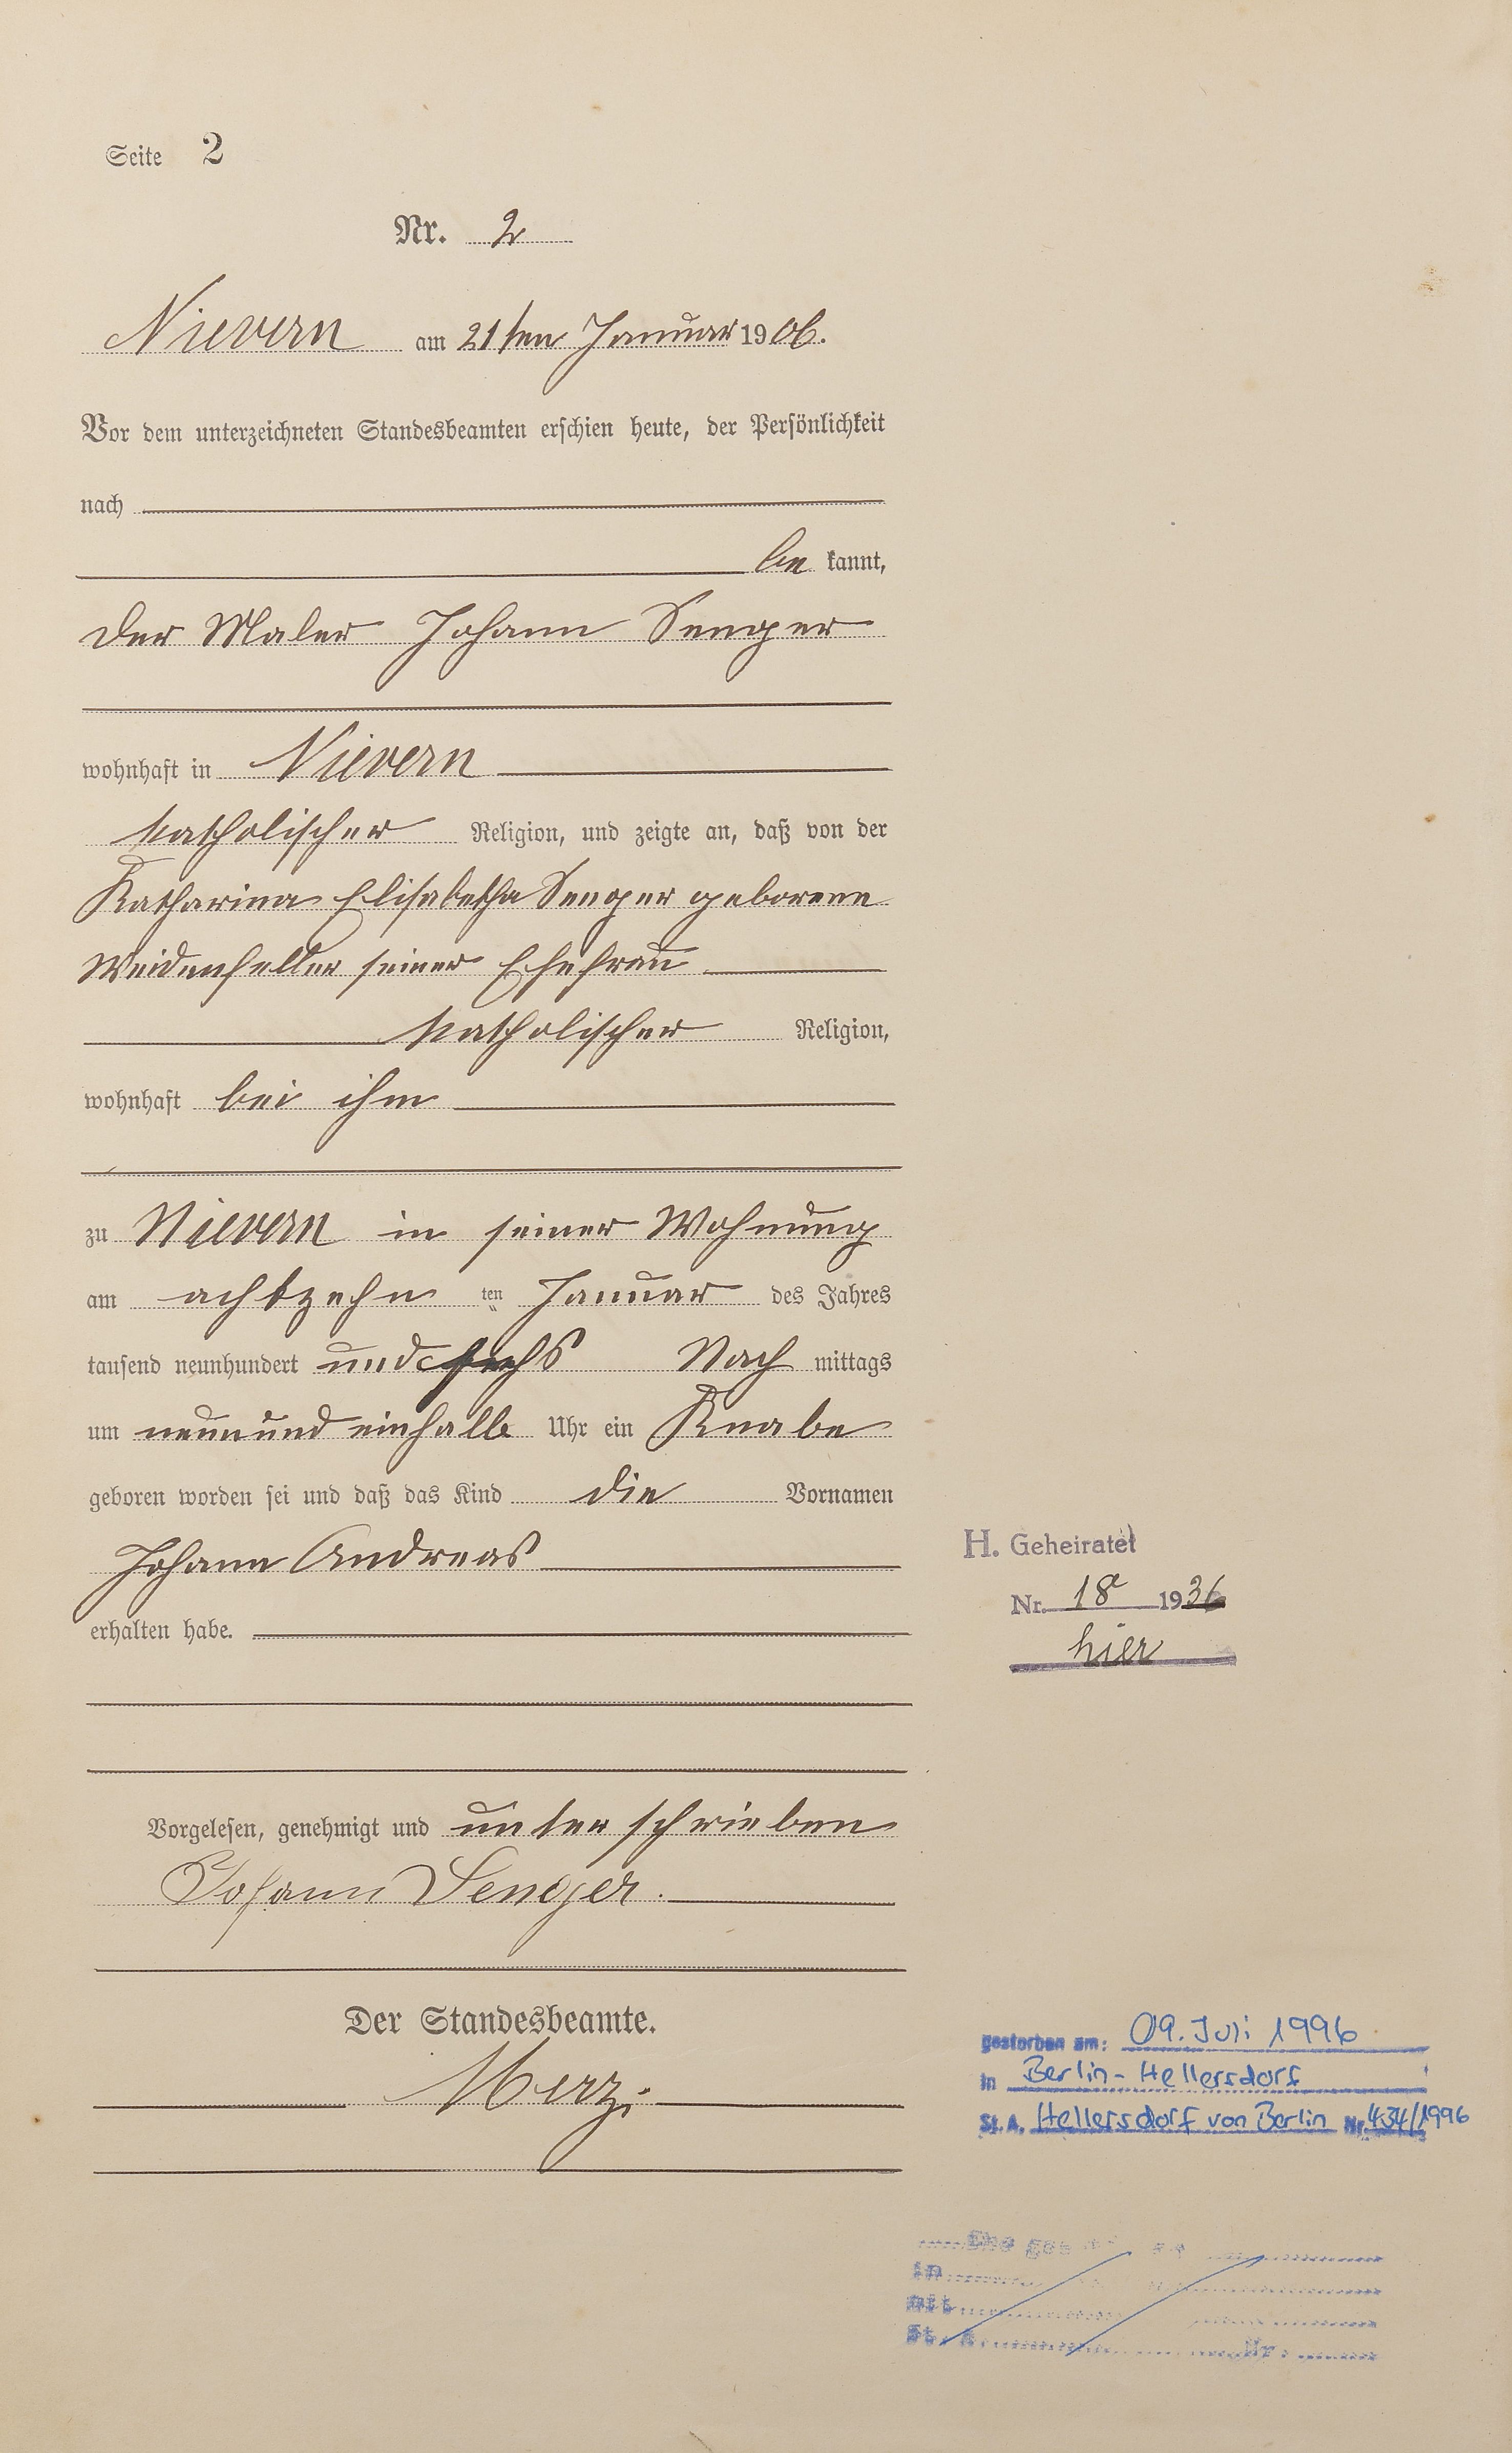 Seite 2
Nr. 2
Nievern am 21ten Januar 1906.
Vor dem unterzeichneten Standesbeamten erschien heute, der Persönlichkeit
nach
be kannt,
der Maler Johann Senger
wohnhaft in Nievern
katholischer Religion, und zeigte an, daß von der
Katharina Elisabetha Senger geborene
Weidenfeller seiner Ehefrau
katholischer Religion,
wohnhaft bei ihm
zu Nievern in seiner Wohnung
am achtzehn ten Januar des Jahres
tausend neunhundert und sechs Nach mittags
um neun und einhalb Uhr ein Knabe
geboren worden sei und daß das Kind die Vornamen
Johann Andreas
erhalten habe.
H. Geheiratet
Nr. 18 1936
hier
Vorgelesen, genehmigt und unterschrieben
Johann Senger.
Der Standesbeamte.
Merz
gestorben am: 09. Juli 1996
in Berlin-Hellersdorf
St.A. Hellersdorf von Berlin Nr. 434/1996
Ehe
in
mit
St. A. Nr.